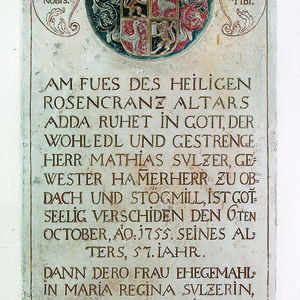 NOBIS.
TIBI.
AM FUES DES HEILIGEN
ROSENCRANZ ALTARS
ADDA RUHET IN GOTT, DER
WOHL EDL UND GESTRENGE
HERR MATHIAS SVLZER, GE-
WESTER HAM̄ERHERR ZU OB-
DACH UND STÖGMILL, IST GOT-
SEELIG VERSCHIDEN DEN 6TEN
OCTOBER, AO. 1755. SEINES AL-
TERS, 57. IAHR.
DANN DERO FRAU EHEGEMAHL-
IN MARIA REGINA SVLZERIN,